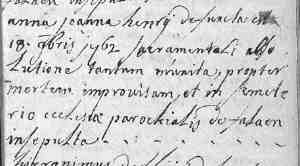 anna joanna henry de
18 9bris 1762 sacramentali abso
lutione tantum munita, propter
mortem improvisam, et in cæmete
rio ecclesiæ parochialis de falaen
insepulta